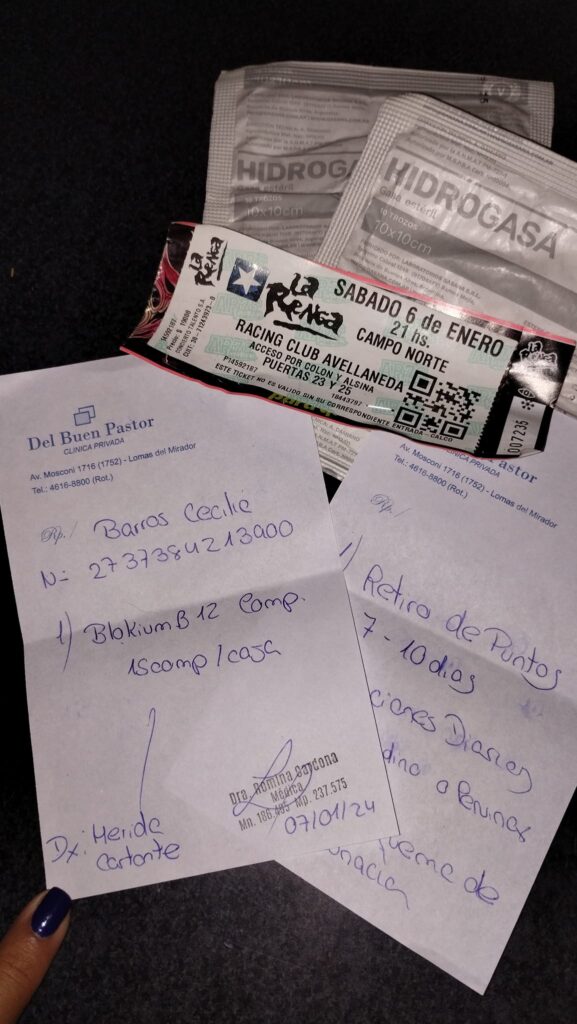 HIDROGASA
Gasa estéril
10 TROZOS
10x10cm
HIDROGASA
Gasa estéril
10 TROZOS
10x10cm
La Renga
La Renga
SABADO 6 de ENERO
21 hs.
CAMPO NORTE
RACING CLUB AVELLANEDA
ACCESO POR COLON Y ALSINA
PUERTAS 23 Y 25
P14592187
18443797
ESTE TICKET NO ES VALIDO SIN SU CORRESPONDIENTE ENTRADA - CALCO
007235
Del Buen Pastor
CLINICA PRIVADA
Av. Mosconi 1716 (1752) - Lomas del Mirador
Tel.: 4616-8800 (Rot.)
Rp./ Barros Cecilie
N= 27373842213900
1) Blokium B12 Comp.
15comp/caja
Dra. Romina Sardona
Médica
Mp. 237.575
07/01/24
Dx: Herida
Cortante
Pastor
CLINICA PRIVADA
Av. Mosconi 1716 (1752) - Lomas del Mirador
Tel.: 4616-8800 (Rot.)
Rp./
1) Retiro de Puntos
7-10 dias
ciones Diarias
dino o Pervinox
quema de
unacion